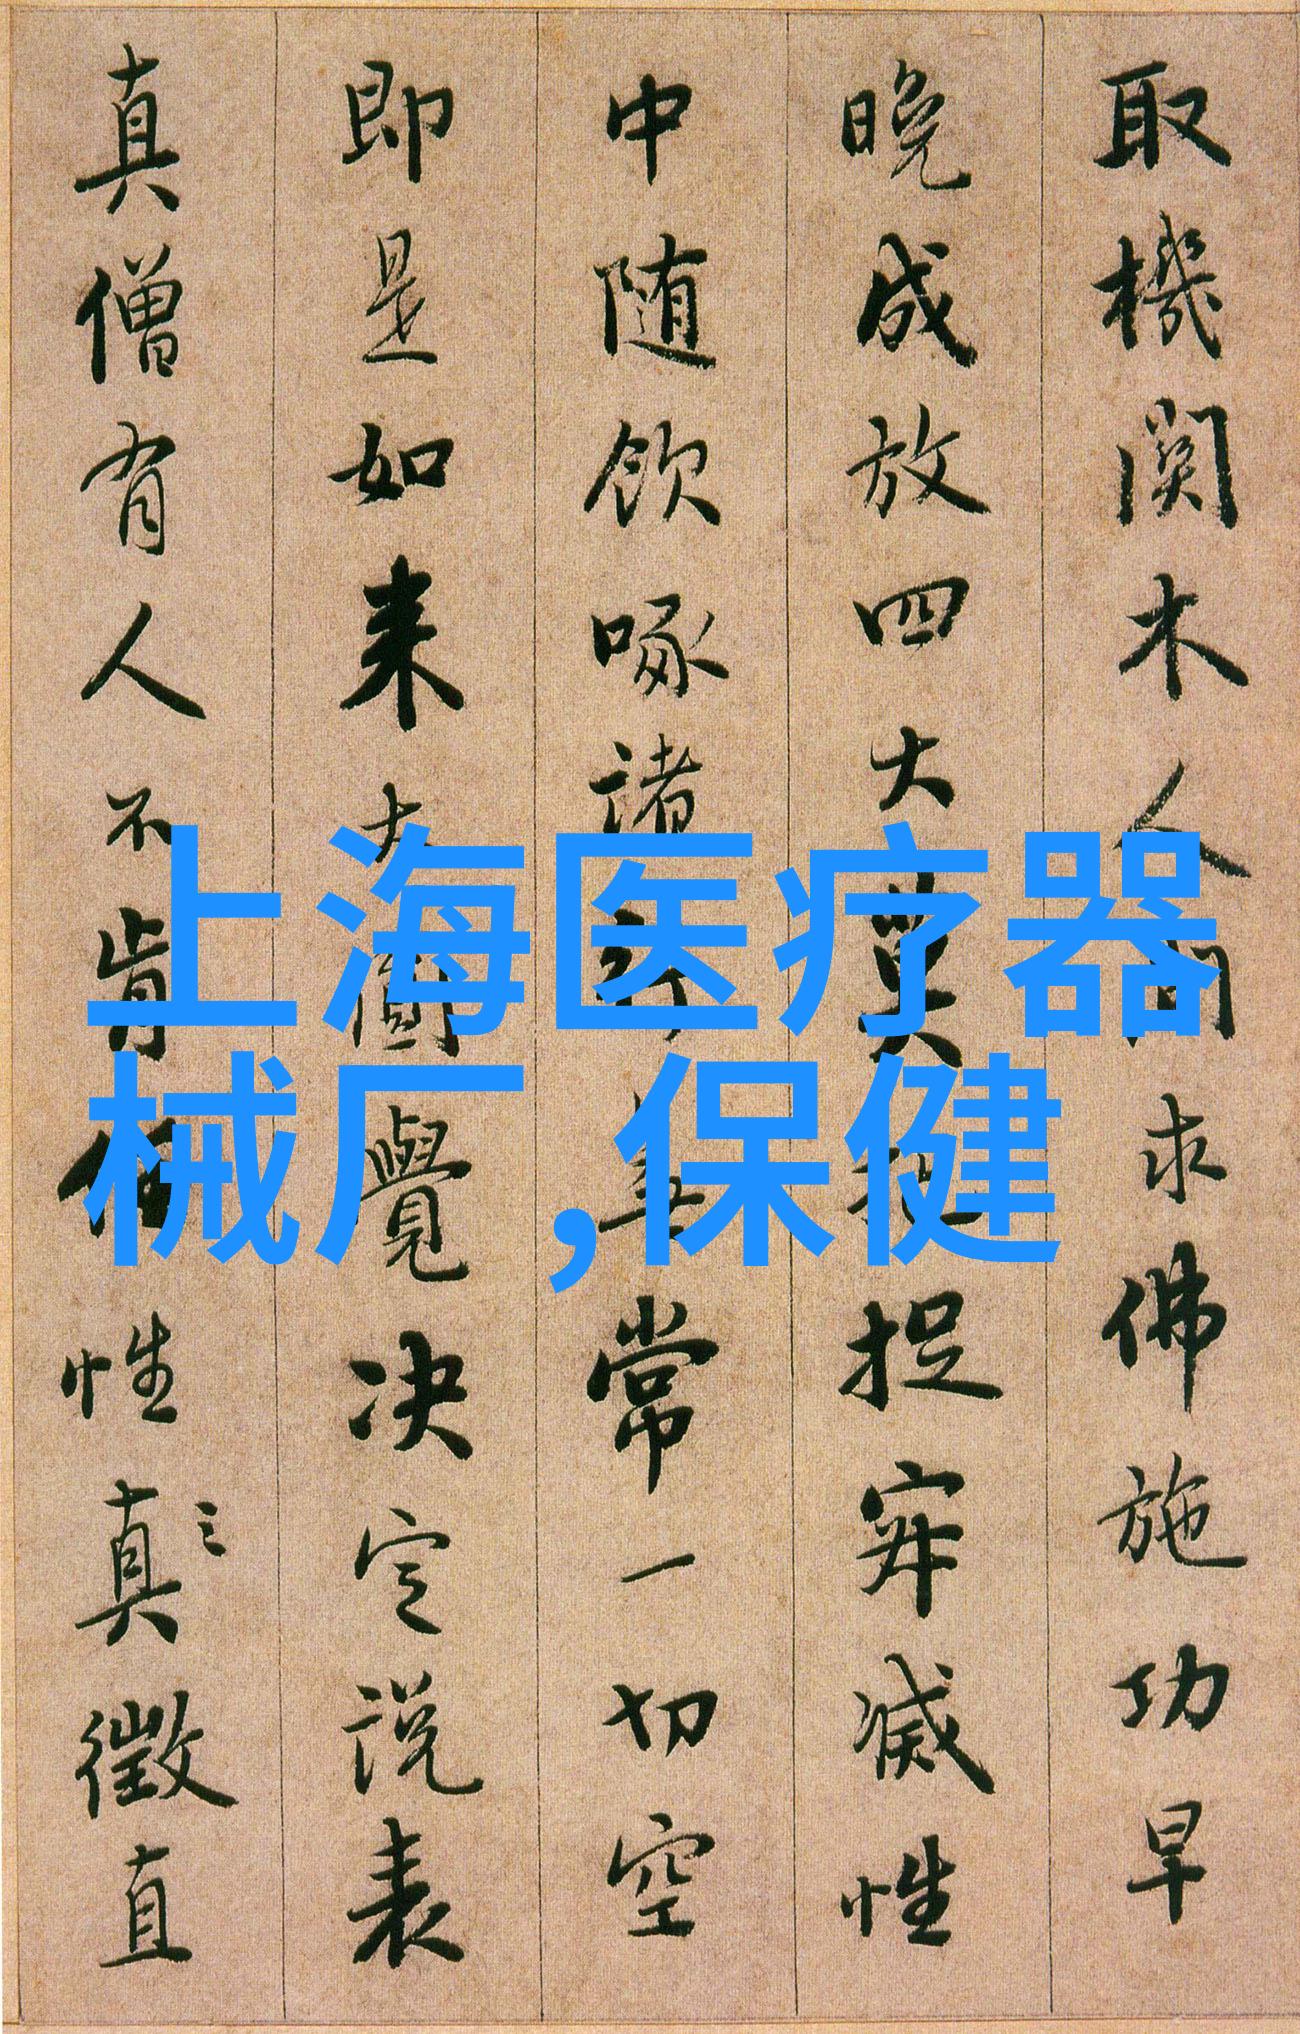 取機関木人問求佛施功早
晚成放四大莫把捉寂滅性
中随飲啄諸行無常一切空
即是如来大圓覺决定说表
真僧有人不肯任性真徵直
之
上海医疗器
械厂,保健